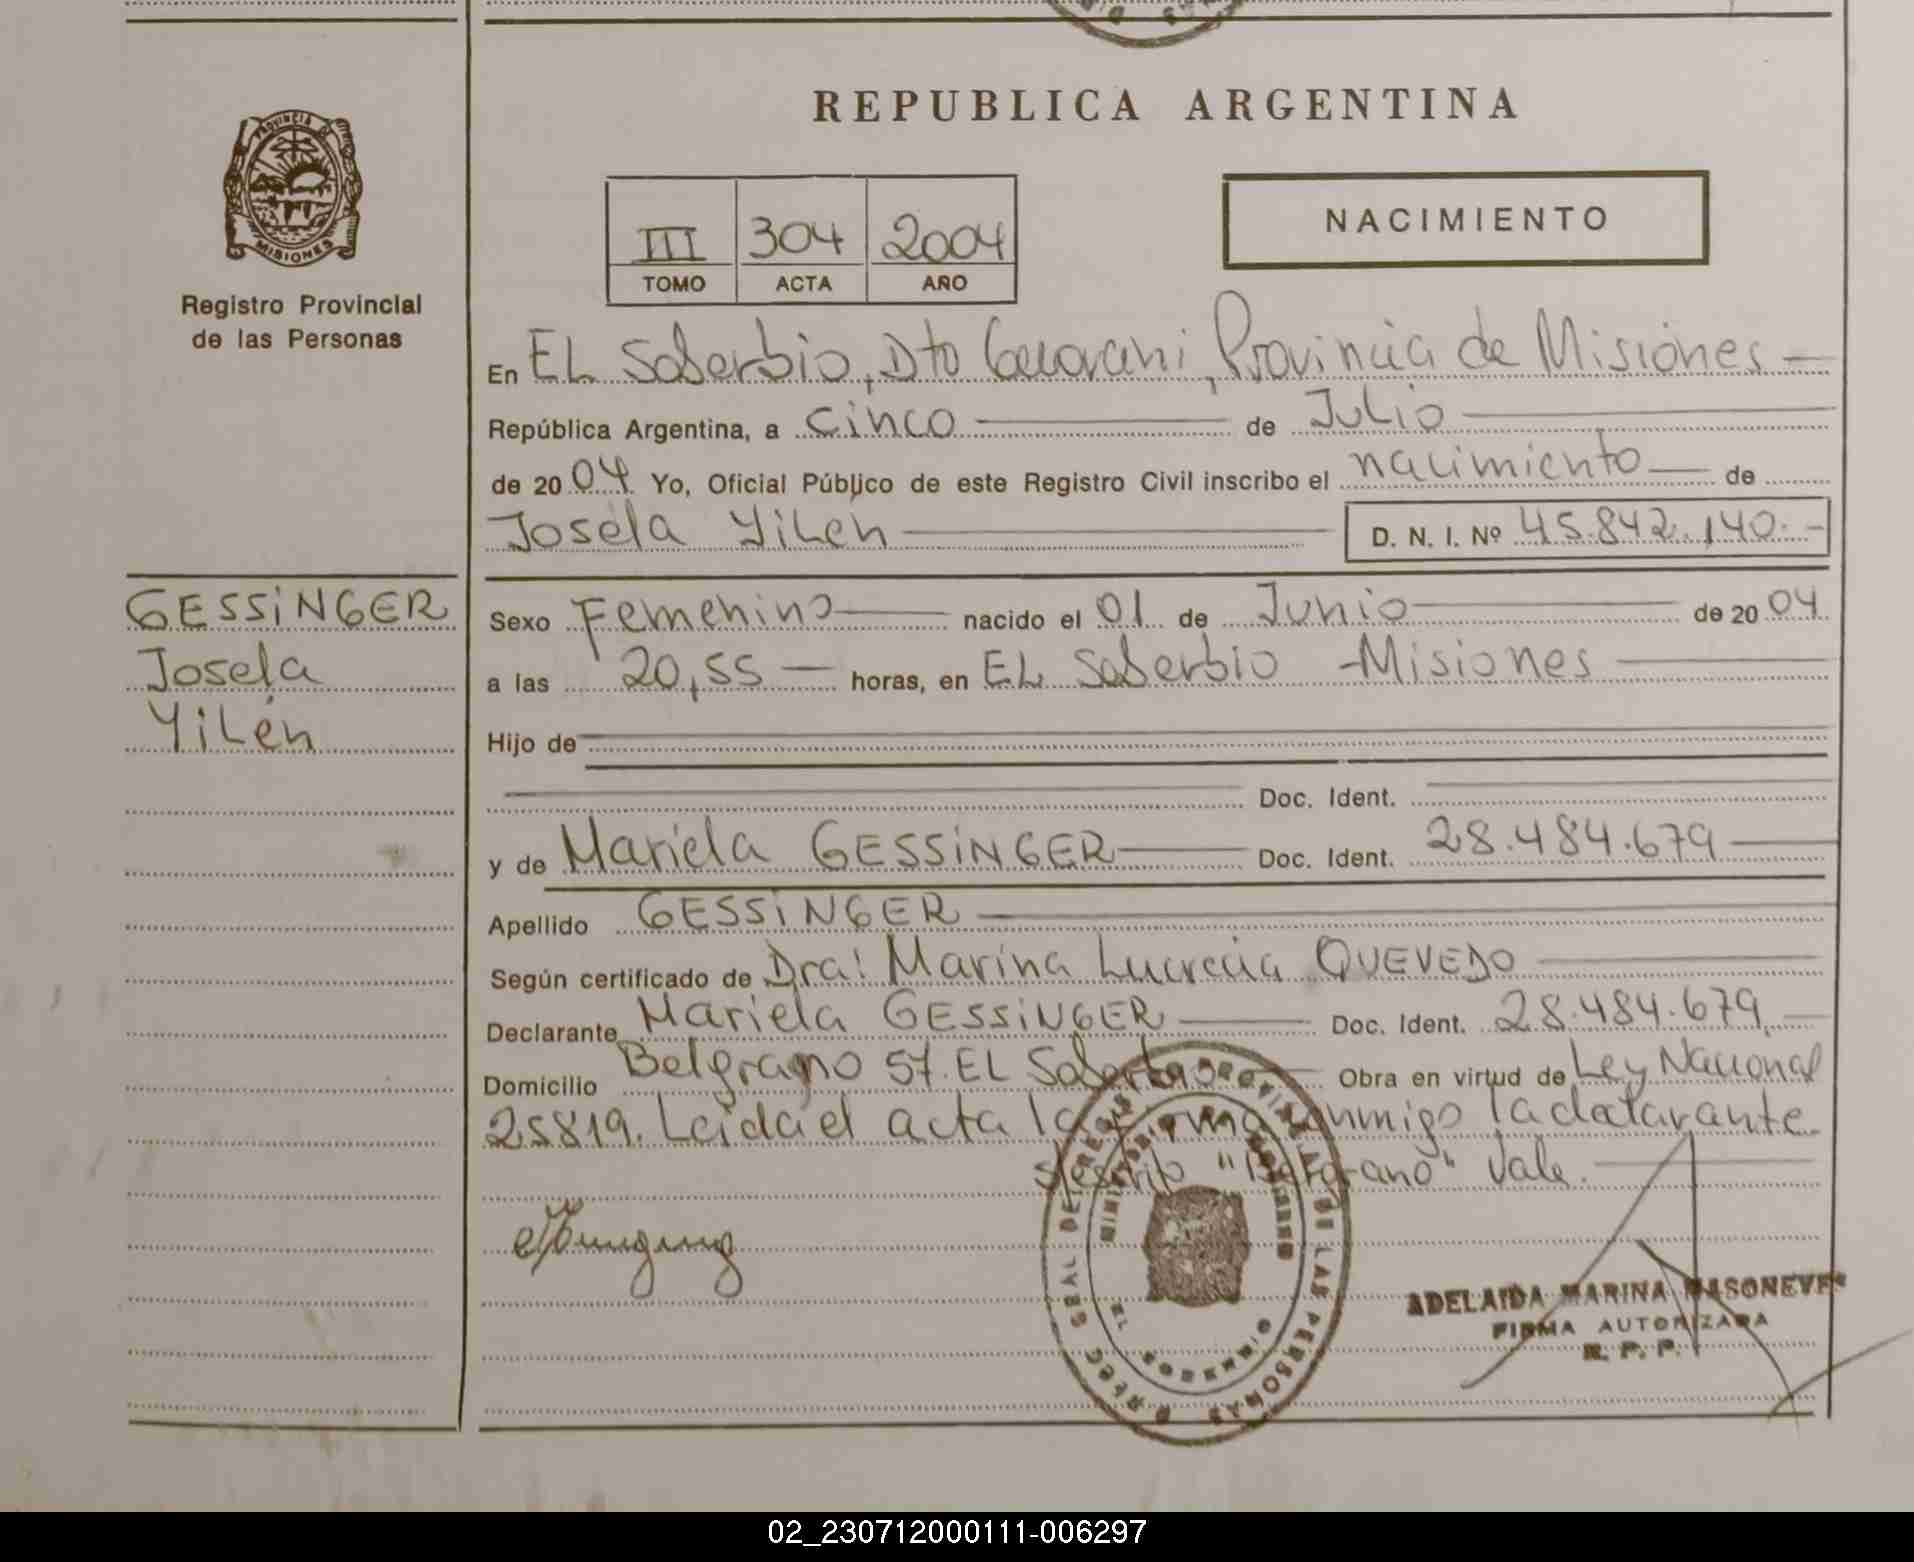 REPUBLICA ARGENTINA
PROVINCIA DE
MISIONES
Registro Provincial
de las Personas
III 304 2004
TOMO ACTA AÑO
NACIMIENTO
En EL Soberbio, Dto Guarani, Provincia de Misiones
República Argentina, a cinco de Julio
de 2004 Yo, Oficial Público de este Registro Civil inscribo el nacimiento de
Josela Yilen D. N. I. Nº 45.842.140.-
GESSiNGER
Josela
Yilén
Sexo Femenino nacido el 01 de Junio de 2004
a las 20,55 horas, en EL Soberbio - Misiones
Hijo de
Doc. Ident.
y de Mariela GESSiNGER Doc. Ident. 28.484.679
Apellido GESSiNGER
Según certificado de Dra: Marina Lucrecia QUEVEDO
Declarante Mariela GESSiNGER Doc. Ident. 28.484.679
Domicilio Belgrano 57. EL Soberbio Obra en virtud de Ley Nacional
25819. Leida el acta la firma conmigo la declarante
"Belgrano" Vale.
REGISTRO PROVINCIAL DE LAS PERSONAS
MINISTERIO DE GOBIERNO
EL SOBERBIO
MISIONES
ADELAIDA MARINA
FIRMA AUTORIZADA
R. P. P.
02_230712000111-006297